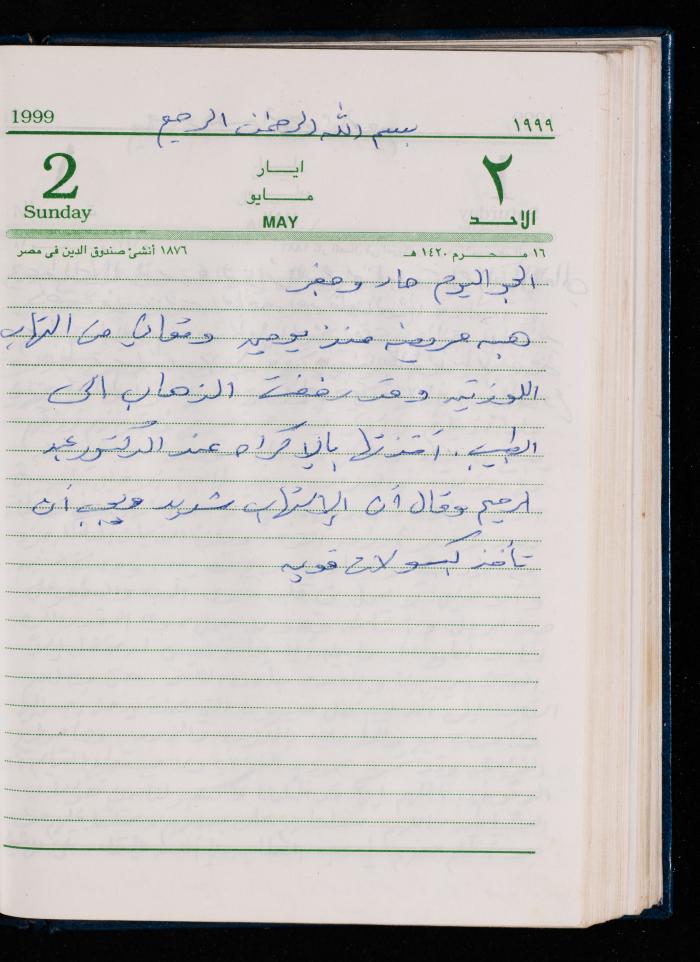 1999 بسم الله الرحمن الرحيم ١٩٩٩
2 ايار ٢
Sunday مايو الاحد
MAY
١٦ محرم ١٤٢٠ هـ ١٨٧٦ أنشئ صندوق الدين فى مصر
الجو اليوم حار ومغبر
هبه مريضه منذ يومين وتعاني من التهاب
اللوزتين وقد رفضت الذهاب الى
الطبيب. أخذتها بالإكراه عند الدكتور عبد
الرحيم وقال أن الإلتهاب شديد ويجب أن
تأخذ كبسولات قويه